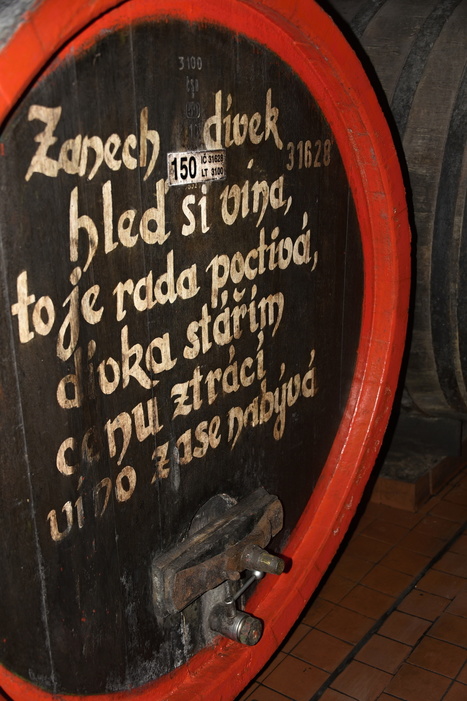 3100
Zanech dívek
31628
150 IČ 31628
LT 3100
hleď si vína,
to je rada poctivá,
dívka stářím
cenu ztrácí
víno zase nabývá